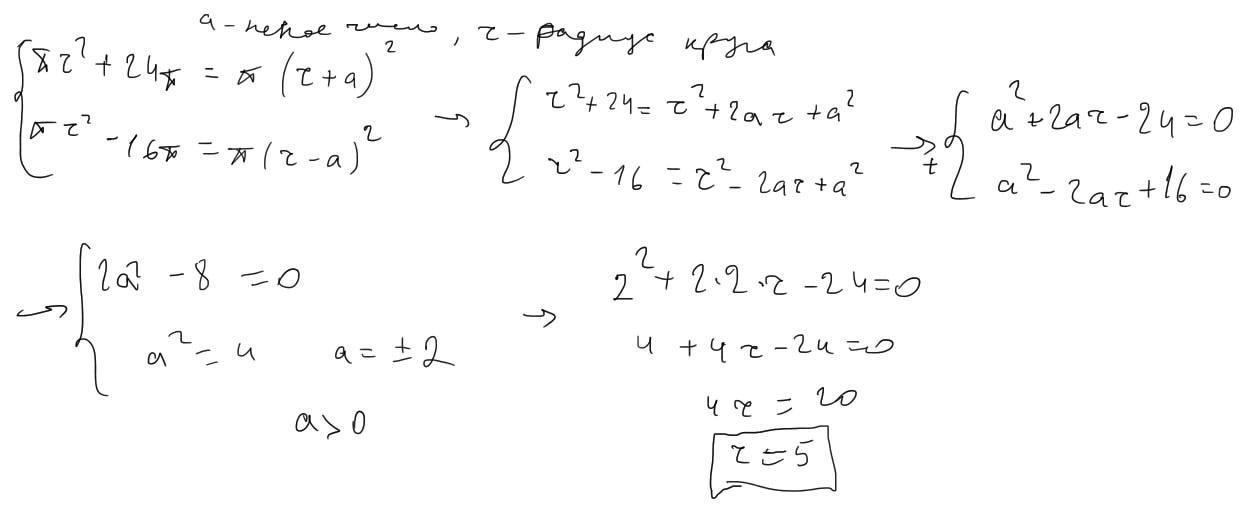 a - некое число, r - радиус круга
πr² + 24π = π(r+a)²
πr² - 16π = π(r-a)²
→ r² + 24 = r² + 2ar + a²
r² - 16 = r² - 2ar + a²
→ + a² + 2ar - 24 = 0
a² - 2ar + 16 = 0
→ 2a² - 8 = 0
a² = 4 a = ±2
a > 0
→ 2² + 2·2·r - 24 = 0
4 + 4r - 24 = 0
4r = 20
r = 5